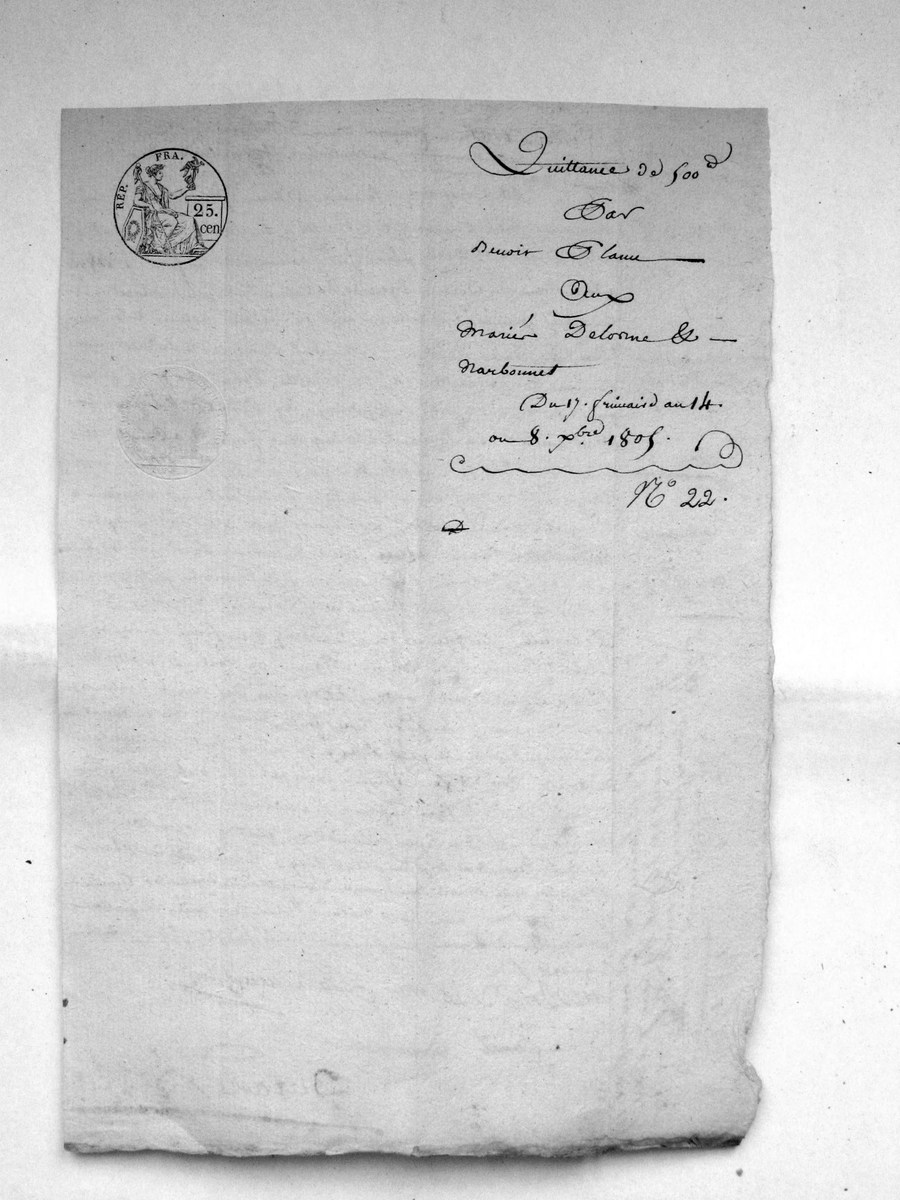 RÉP. FRA.
25.
cen
Quittance de 500#
Par
Benoit Planu
Aux
Mariés Delorme &
Narbonnet
Du 17. frimaire an 14.
ou 8. xbre 1805.
N° 22.